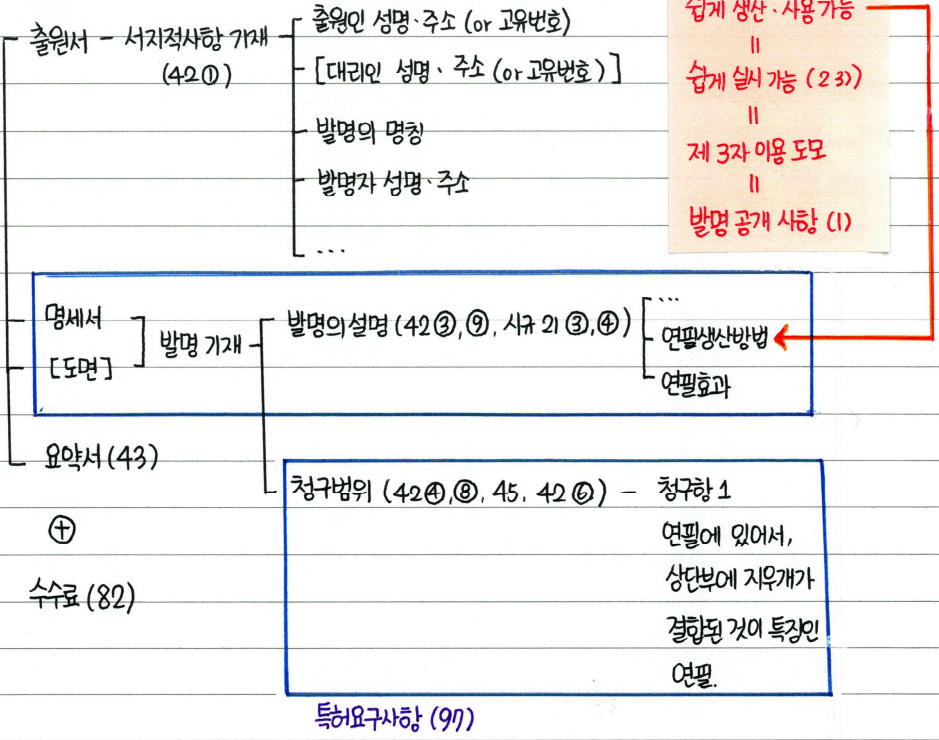 출원서 - 서지적사항 기재
(42①)
출원인 성명·주소 (or 고유번호)
[대리인 성명·주소 (or 고유번호)]
발명의 명칭
발명자 성명·주소
...
쉽게 생산·사용가능
=
쉽게 실시 가능 (2 3))
=
제 3자 이용 도모
=
발명 공개 사항 (1)
명세서
[도면]
발명 기재
발명의설명 (42③,⑨, 시규 21 ③,④)
...
연필생산방법
연필효과
요약서 (43)
⊕
수수료 (82)
청구범위 (42④,⑧, 45, 42⑥) - 청구항 1
연필에 있어서,
상단부에 지우개가
결합된 것이 특징인
연필.
특허요구사항 (97)